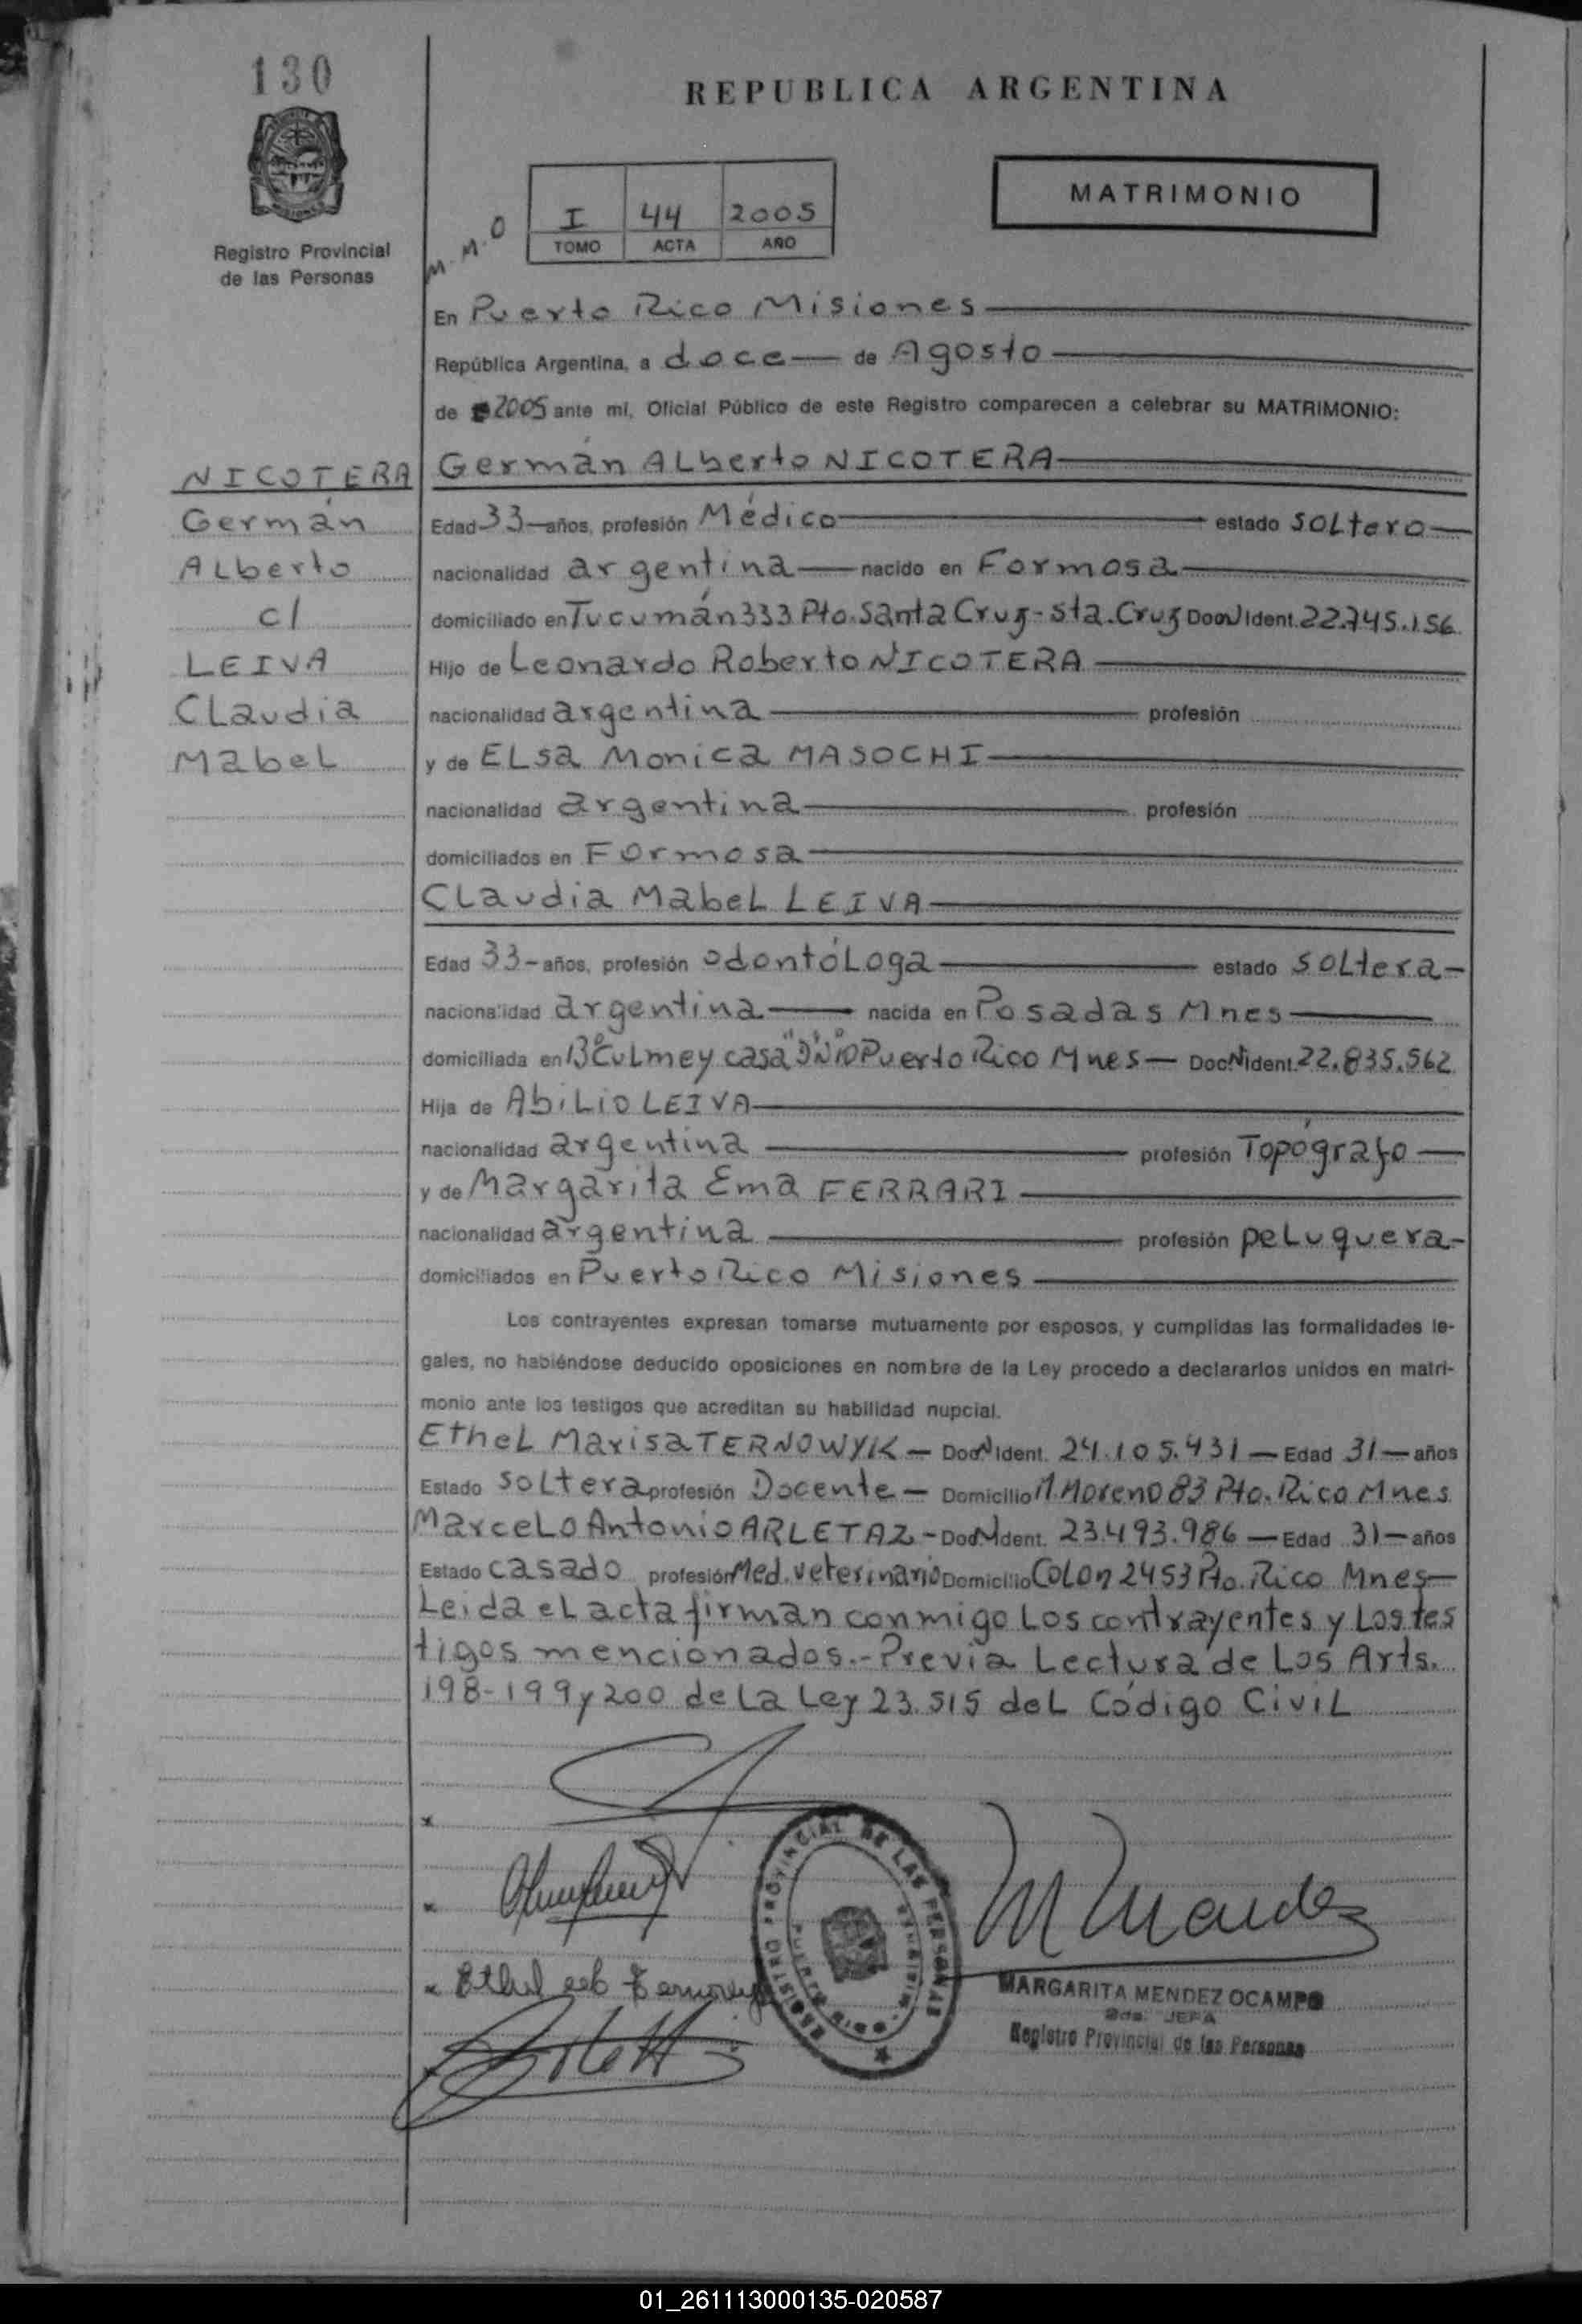 130
REPUBLICA ARGENTINA
MATRIMONIO
I 44 2005
TOMO ACTA AÑO
M.M.O
Registro Provincial
de las Personas
En Puerto Rico Misiones
República Argentina, a doce de Agosto
de 2005 ante mí, Oficial Público de este Registro comparecen a celebrar su MATRIMONIO:
NICOTERA
Germán
Alberto
c/
LEIVA
Claudia
Mabel
Germán Alberto NICOTERA
Edad 33 años, profesión Médico estado soltero
nacionalidad argentina nacido en Formosa
domiciliado en Tucumán 333 Pto. Santa Cruz - Sta. Cruz Doc. N Ident. 22.745.156
Hijo de Leonardo Roberto NICOTERA
nacionalidad argentina profesión
y de Elsa Monica MASOCHI
nacionalidad argentina profesión
domiciliados en Formosa
Claudia Mabel LEIVA
Edad 33 años, profesión odontóloga estado soltera
nacionalidad argentina nacida en Posadas Mnes
domiciliada en Bº Culmey casa "D" Nº 10 Puerto Rico Mnes Doc. N Ident. 22.835.562
Hija de Abilio LEIVA
nacionalidad argentina profesión Topógrafo
y de Margarita Ema FERRARI
nacionalidad argentina profesión peluquera
domiciliados en Puerto Rico Misiones
Los contrayentes expresan tomarse mutuamente por esposos, y cumplidas las formalidades le-
gales, no habiéndose deducido oposiciones en nombre de la Ley procedo a declararlos unidos en matri-
monio ante los testigos que acreditan su habilidad nupcial.
Ethel Marisa TERNOWYK - Doc. N Ident. 24.105.431 - Edad 31 - años
Estado soltera profesión Docente - Domicilio M. Moreno 83 Pto. Rico Mnes
Marcelo Antonio ARLETAZ - Doc. N Ident. 23.493.986 - Edad 31 - años
Estado casado profesión Med. veterinario Domicilio Colon 2453 Pto. Rico Mnes
Leida el acta firman conmigo los contrayentes y los tes
tigos mencionados.- Previa Lectura de Los Arts.
198-199 y 200 de la Ley 23.515 del Código Civil
REGISTRO PROVINCIAL DE LAS PERSONAS
MARGARITA MENDEZ OCAMPO
2da. JEFA
Registro Provincial de las Personas
01_261113000135-020587